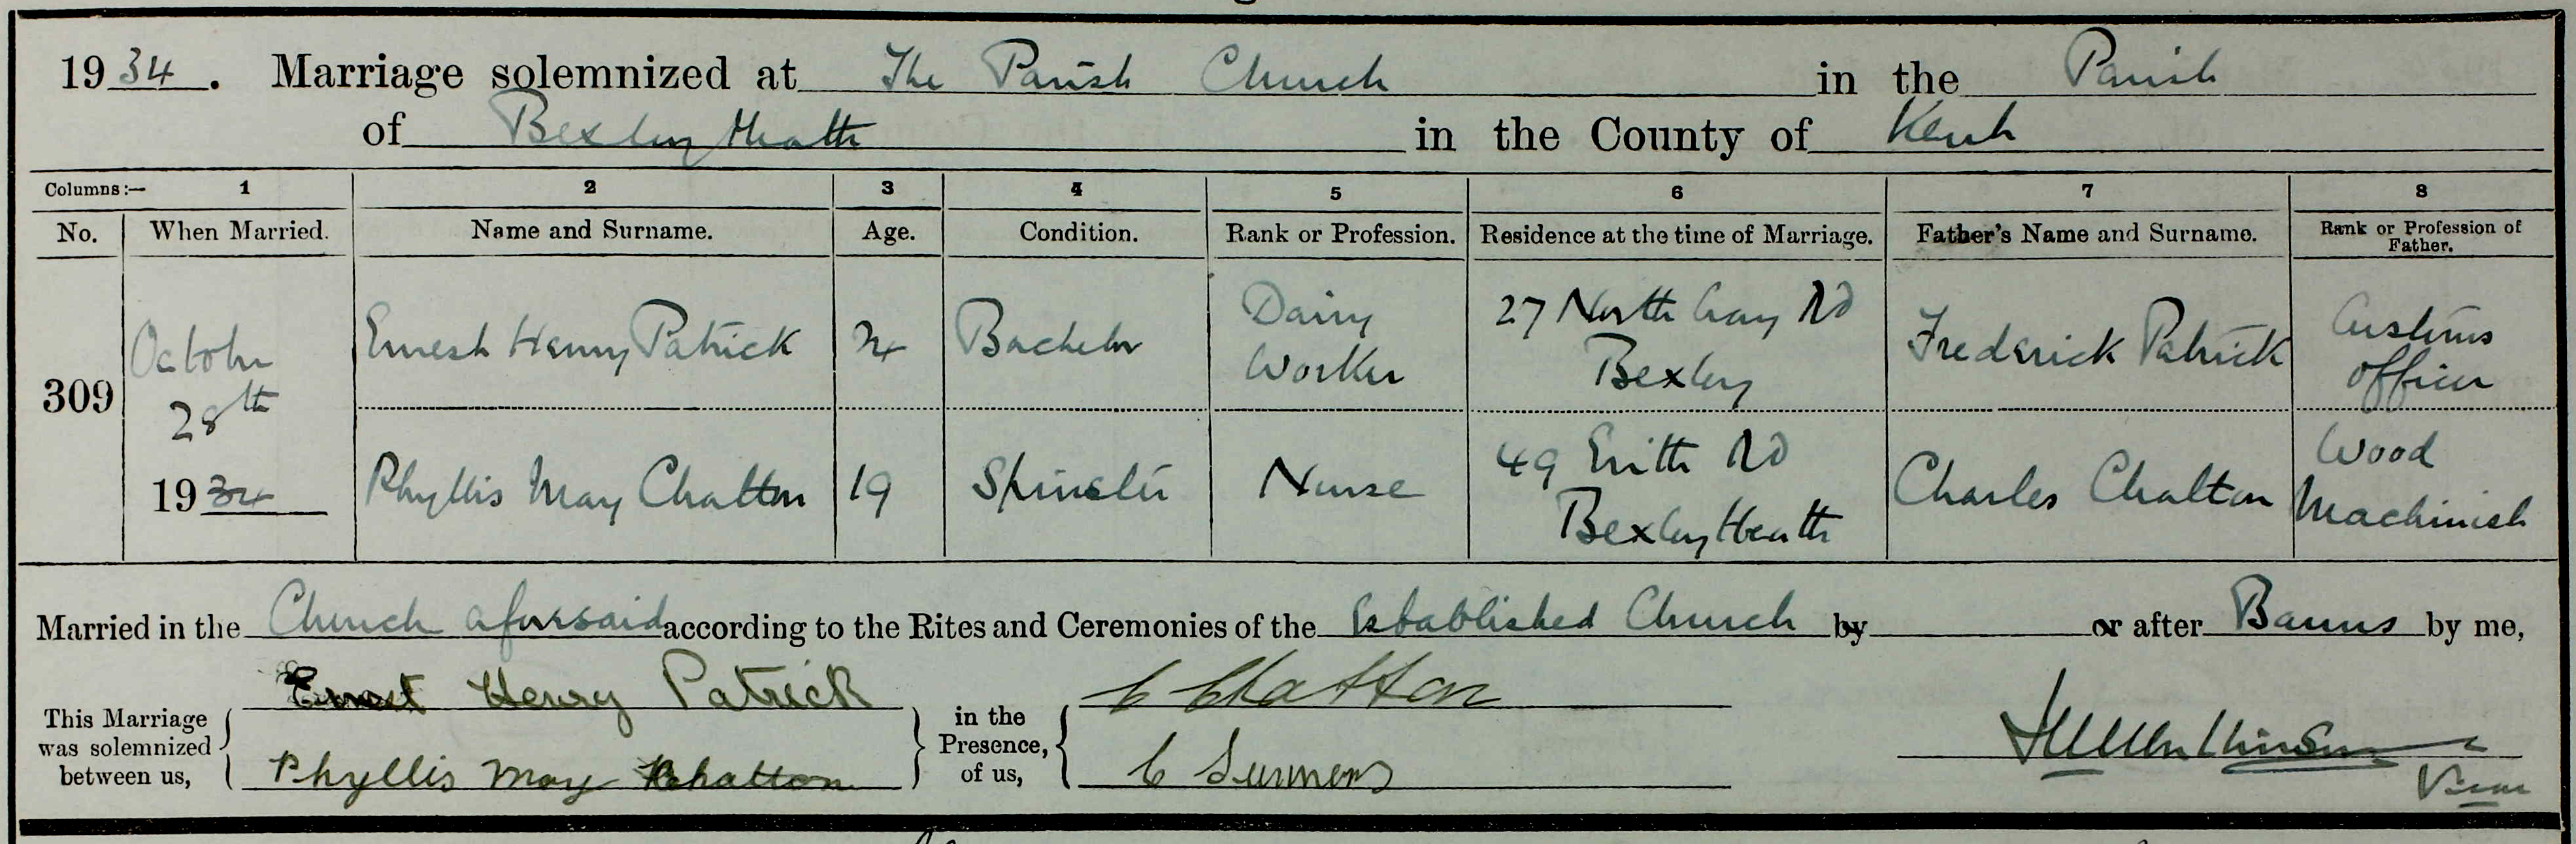 1934. Marriage solemnized at The Parish Church in the Parish
of Bexley Heath in the County of Kent
Columns:— 1 2 3 4 5 6 7 8
No. When Married. Name and Surname. Age. Condition. Rank or Profession. Residence at the time of Marriage. Father's Name and Surname. Rank or Profession of Father.
309
October
28th
1934
Ernest Henry Patrick
24
Bachelor
Dairy
Worker
27 North Cray Rd
Bexley
Frederick Patrick
Customs
Officer
Phyllis May Chatton
19
Spinster
Nurse
49 Erith Rd
Bexley Heath
Charles Chatton
Wood
Machinist
Married in the Church aforesaid according to the Rites and Ceremonies of the Established Church by or after Banns by me,
This Marriage was solemnized between us,
Ernest Henry Patrick
Phyllis May Chatton
in the Presence, of us,
C Chatton
C Surmons
Vicar